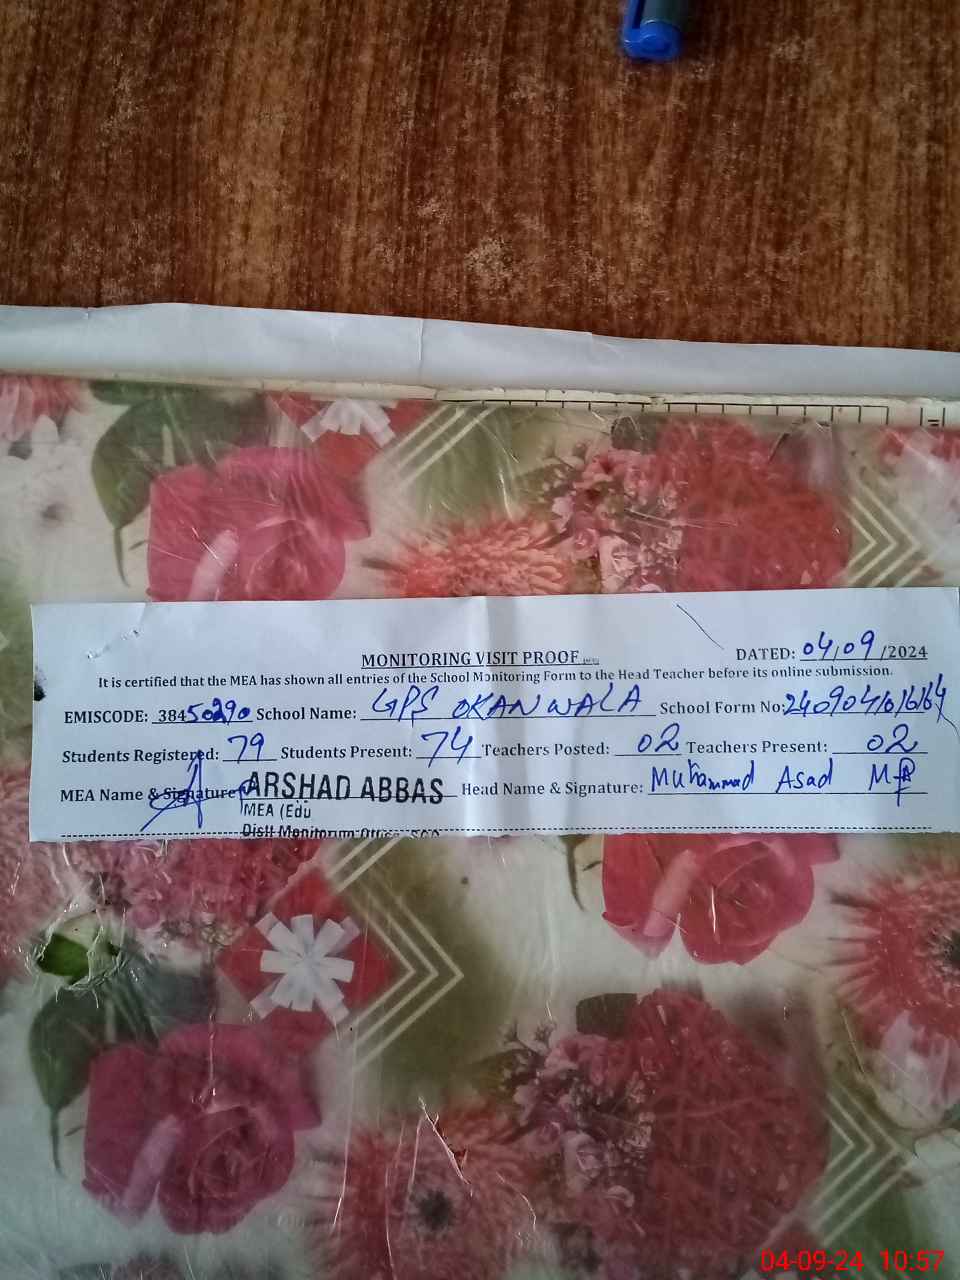 MONITORING VISIT PROOF
DATED: 04/09/2024
It is certified that the MEA has shown all entries of the School Monitoring Form to the Head Teacher before its online submission.
EMISCODE: 38450290 School Name: GPS OKANWALA School Form No:
Students Registered: 79 Students Present: 74 Teachers Posted: 02 Teachers Present: 02
MEA Name & Signature: ARSHAD ABBAS Head Name & Signature: Muhammad Asad
MEA (Edu
Distt Monitoring Office
04-09-24 10:57